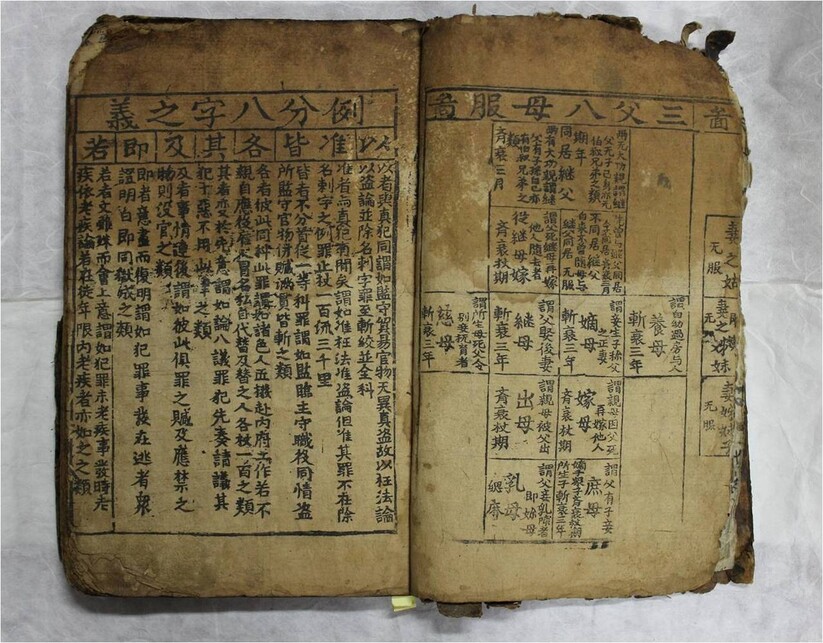 啚
妻之姑
无服
无服
妻之父
三父八母服啚
兩无大功親謂継
父无子己身亦无
伯叔兄弟之類
期年
同居継父
齊衰三月
不同居継父
自來不曽隨母与
継父同居 无服
謂父死継母再嫁
他人隨去者
從継母嫁
齊衰杖期
謂自幼過房与人
養母
斬衰三年
謂妾生子称父
之正妻
嫡母
斬衰三年
謂父娶後妻
継母
斬衰三年
謂所生母死父令
別妾撫育者
慈母
斬衰三年
謂親母因父死
再嫁他人
嫁母
齊衰杖期
謂親母被父出
出母
齊衰杖期
謂父有子妾
嫡子衆子齊衰杖期
所生子斬衰三年
庶母
謂父妾乳哺者
即妳母
乳母
緦麻
例分八字之義
以 准 皆 各 其 及 即 若
以者與真犯同謂如監守貿易官物无異真盗故以枉法論
以盗論並除名刺字罪至斬絞並全科
准者與真犯有間矣謂如准枉法准盗論但准其罪不在除
名刺字之例罪止杖一百流三千里
皆者不分首從一等科罪謂如監臨主守職役同情盗
所監守官物併贓滿貫皆斬之類
各者彼此同科此罪謂如諸色人匠撥赴内府工作若不
親自應役雇人冒名私自代替及替之人各杖一百之類
其者变於先意謂如論八議罪犯先奏請議其
犯十惡不用此律之類
及者事情連後謂如彼此俱罪之贓及應禁之
物則没官之類
即者意盡而復明謂如犯罪事發在逃者衆
證明白即同獄成之類
若者文雖殊而會上意謂如犯罪未老疾事發時老
疾依老疾論若在徒年限内老疾者亦如之之類